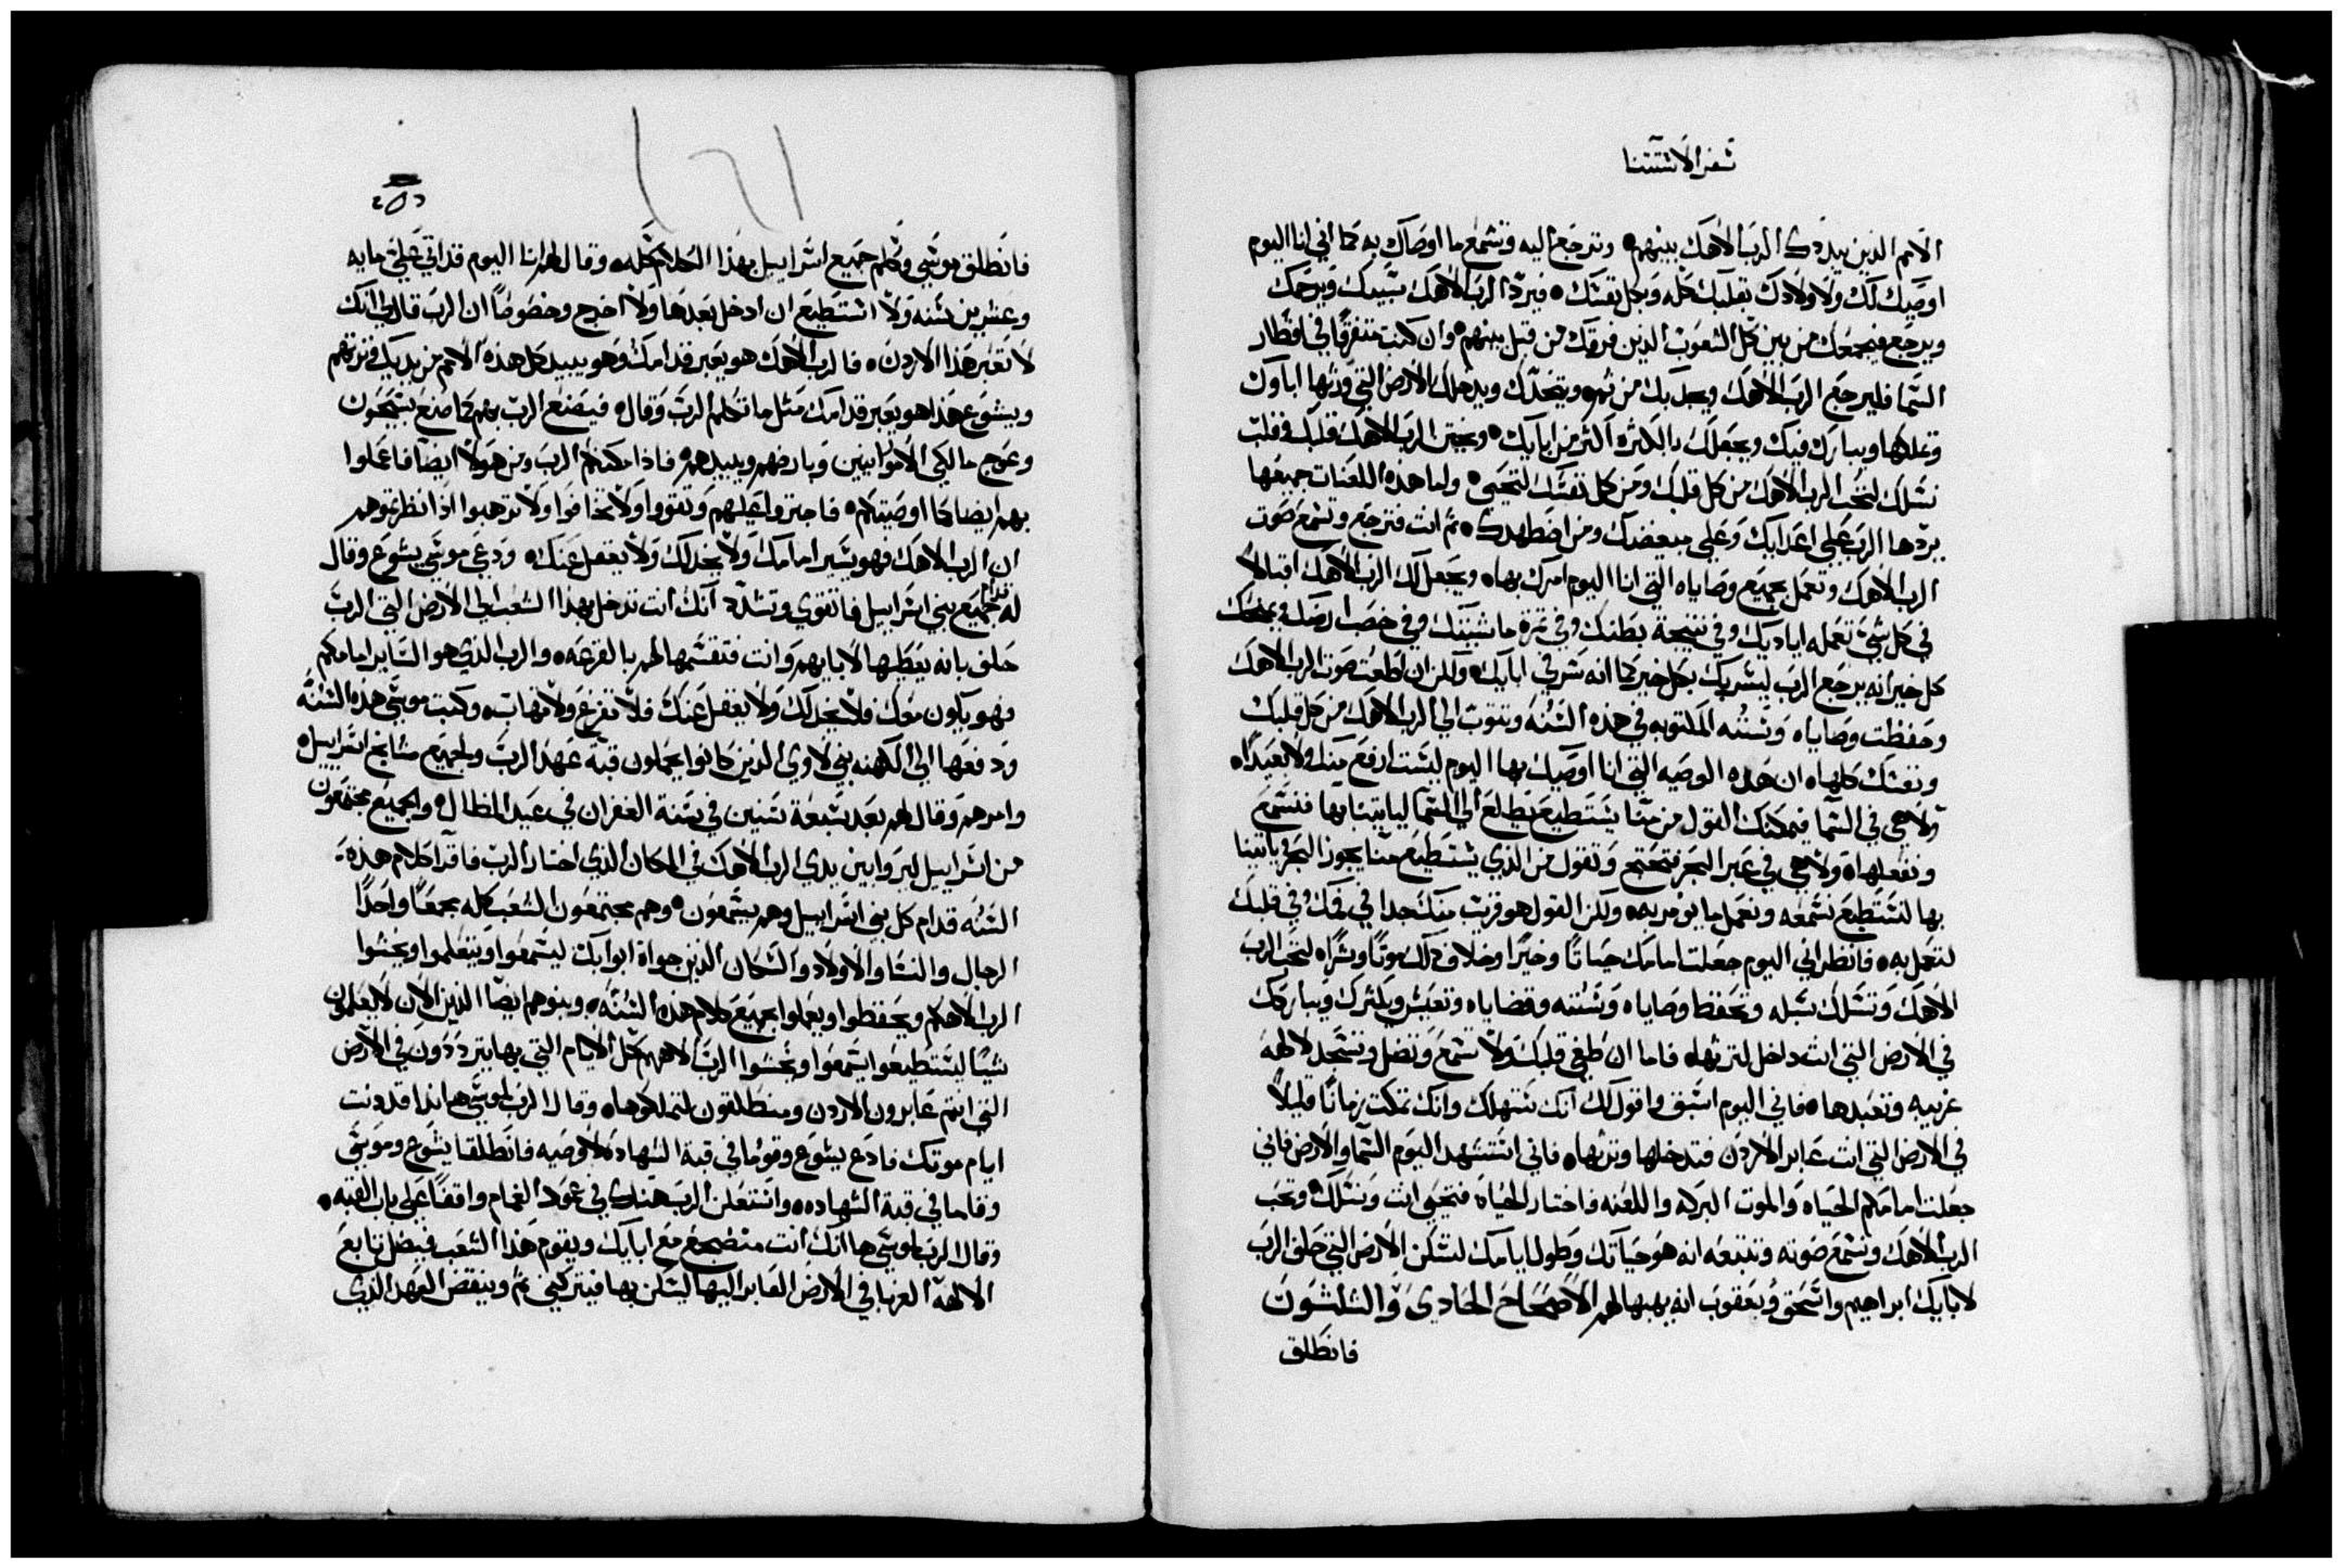 سفر الاستتنا
الامم الذين يبددك الرب الاهك بينهم وترجع اليه وتسمع ما اوصاك به كما اني انا اليوم
اوصيك لك ولاولادك بقلبك كله وبكل نفسك فيرد الرب الاهك سبيك ويرحمك
ويرجع فيجمعك من بين كل الشعوب الذين فرقك من قبل بينهم وان كنت متفرقا في اقطار
السما فليرجع الرب الاهك ويجديك من ثم ويتخدك ويدخلك الارض التي ورثها اباوك
وتملكها ويبارك فيك ويجعلك بالكثره اكثر من ابايك ويختن الرب الاهك قلبك وقلب
نسلك لتحب الرب الاهك من كل قلبك ومن كل نفسك لتحيى ولما هذه اللعنات جميعها
يردها الرب على اعدايك وعلى مبغضيك ومن اضطهدك ثم انت فترجع وتسمع صوت
الرب الاهك وتعمل بجميع وصاياه التي انا اليوم امرك بها ويجعل لك الرب الاهك اقبالا
في كل شي تعمله اياديك وفي نتيجة بطنك وفي ثمرة ماشيتك وفي خصب ارضك
كل خير انه يرجع الرب ليسر بك بكل خير كما انه سر في ابايك ولكن ان اطعت صوت الرب الاهك
وحفظت وصاياه وسننه المكتوبه في هذه السنه وتتوب الي الرب الاهك من كل قلبك
ونفسك كلها ان هذه الوصيه التي انا اوصيك بها اليوم ليست ارفع منك ولا بعيدا
ولا هي في السما فيمكنك القول من منا يستطيع يطلع الي السما لياتينا بها فنسمع
ونفعلها ولا هي في عبر البحر فتحتج وتقول من الذي يستطيع منا يجوز البحر وياتينا
بها لنستطيع نسمعه ونعمل ما يومر به ولكن القول هو قريب منك جدا في فمك وفي قلبك
لتعمل به فانظر اني اليوم جعلت امامك حياتا وخيرا وخلاف ذلك موتا وشرا لتحب الرب
الاهك وتسلك سبله وتحفظ وصاياه وسننه وقضاياه وتعيش ويكثرك ويباركك
في الارض التي انت داخل لترثها فاما ان طغي قلبك ولا تسمع وتضل وتسجد لالهة
غريبه وتعبدها فاني اليوم اسبق واقول لك انك ستهلك وانك تمكت زمانا قليلا
في الارض التي انت عابر الاردن فتدخلها وترثها فاني استشهد اليوم السما والارض فاني
جعلت امامكم الحياه والموت البركه واللعنه فاختار الحياة فتحيى انت ونسلك وتحب
الرب الاهك وتسمع صوته وتتبعه انه هو حياتك وطول ايامك لتسكن الارض التي حلف الرب
لابايك ابراهيم واسحق ويعقوب انه يهبها لهم الاصحاح الحادي والثلثون
فانطلق
فانطلق موسي وكلم جميع اسراييل بهذا الكلام كله وقال لهم انا اليوم قد اتي علي مايه
وعشرين سنه ولا استطيع ان ادخل بعدها ولا اخرج وخصوصا ان الرب قال لي انك
لا تعبر هذا الاردن فالرب الاهك هو يعبر قدامك وهو يبيد كل هذه الامم من يديك وترثهم
ويشوع هذا هو يعبر قدامك مثل ما تكلم الرب وقال فيصنع الرب بهم كما صنع بسيحون
وعوج مالكي الاموابيين وبارضهم ويبيدهم فاذا مكنكم الرب من هولا ايضا فاعملوا
بهم ايضا كما اوصيتكم فاجتروا عليهم وتقووا ولا تخافوا ولا ترهبوا اذا نظرتموهم
ان الرب الاهك فهو يسير امامك ولا يخدلك ولا يغفل عنك ودعي موسي يشوع وقال
له قدام جميع بني اسراييل فاتقوي وتشدد انك انت تدخل بهذا الشعب الي الارض التي الرب
حلف بانه يعطيها لابايهم وانت فتقسمها لهم بالقرعه والرب الذي هو الساير امامكم
فهو يكون معك فلا يخدلك ولا يغفل عنك فلا تفزع ولا تهاب وكتب موسي هذه السنه
ودفعها الي الكهنه بني لاوي الذين كانوا يحملون قبة عهد الرب ولجميع مشايخ اسراييل
وامرهم وقال لهم بعد سبعة سنين في سنة الغفران في عيد المظال والجميع مجتمعون
من اسراييل ليروا بين يدي الرب الاهك في المكان الذي اختار الرب فاقرا كلام هذه
السنه قدام كل بني اسراييل وهم يسمعون وهم مجتمعون الشعب كله جمعا واحدا
الرجال والنسا والاولاد والسكان الذين جواة ابوابك ليسمعوا ويتعلموا ويخشوا
الرب الاهكم ويحفظوا ويعملوا بجميع كلام هذه السنه وبنوهم ايضا الذين الان لا يعلمون
شيا ليستطيعوا يسمعوا ويخشوا الرب لاههم كل الايام التي بها يترددون في الارض
التي انتم عابرون الاردن ومنطلقون لتملكوها وقال الرب لموسي هانذا قد دنت
ايام موتك فادع يشوع وقوما في قبة الشهادة لاوصيه فانطلقا يشوع وموسي
وقاما في قبة الشهاده واستعلن الرب هناك في عمود الغمام واقفا على باب القبه
وقال الرب لموسي ها انك انت منضجع مع ابايك ويقوم هذا الشعب فيضل تابع
الالهة الغربا في الارض العابر اليها ليسكن بها فيتركني ثم وينقض العهد الذي